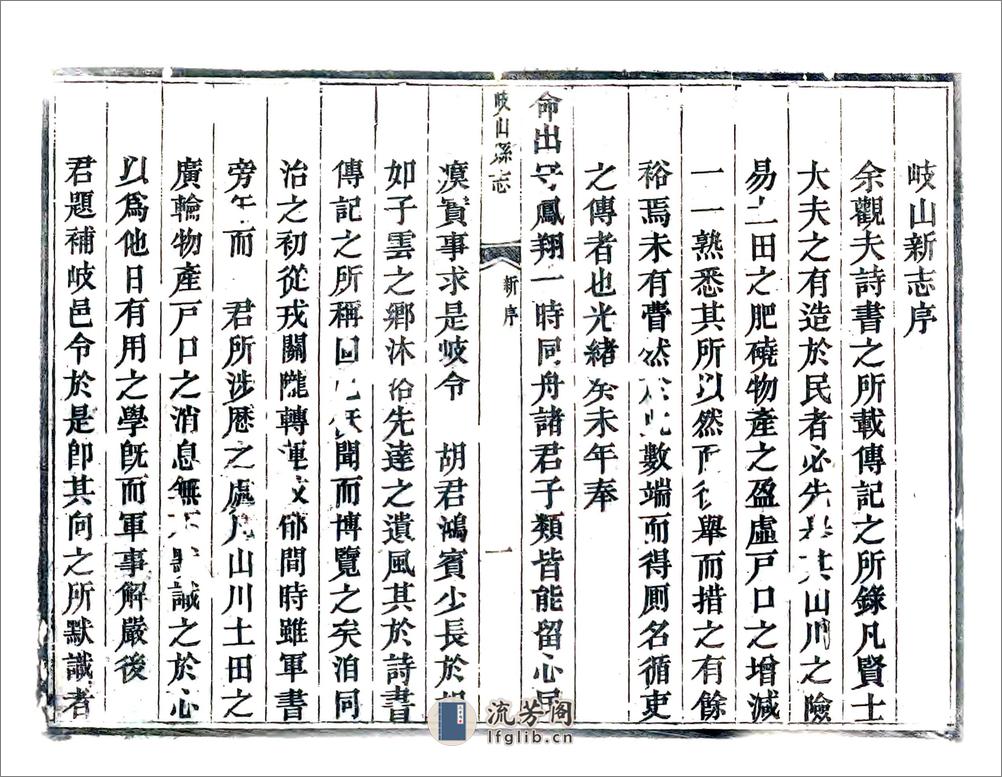 岐山新志序
余觀夫詩書之所載傳記之所錄凡賢士
大夫之有造於民者必先其山川之險
易土田之肥磽物產之盈虛戶口之增減
一一熟悉其所以然而後舉而措之有餘
裕焉未有瞢然於此數端而得厠名循吏
之傳者也光緒癸未年奉
命出守鳳翔一時同舟諸君子類皆能留心民
岐山縣志
新序
一
瘼實事求是岐令 胡君鴻賓少長於
如子雲之鄉沐浴先達之遺風其於詩書
傳記之所稱固已聞而博覽之矣洎同
治之初從戎關隴轉運邠間時雖軍書
旁午而 君所涉歷之處凡山川土田之
廣輪物產戶口之消息無不默識之於心
以爲他日有用之學旣而軍事解嚴後
君題補岐邑令於是卽其向之所默識者
流芳閣
lfglib.cn